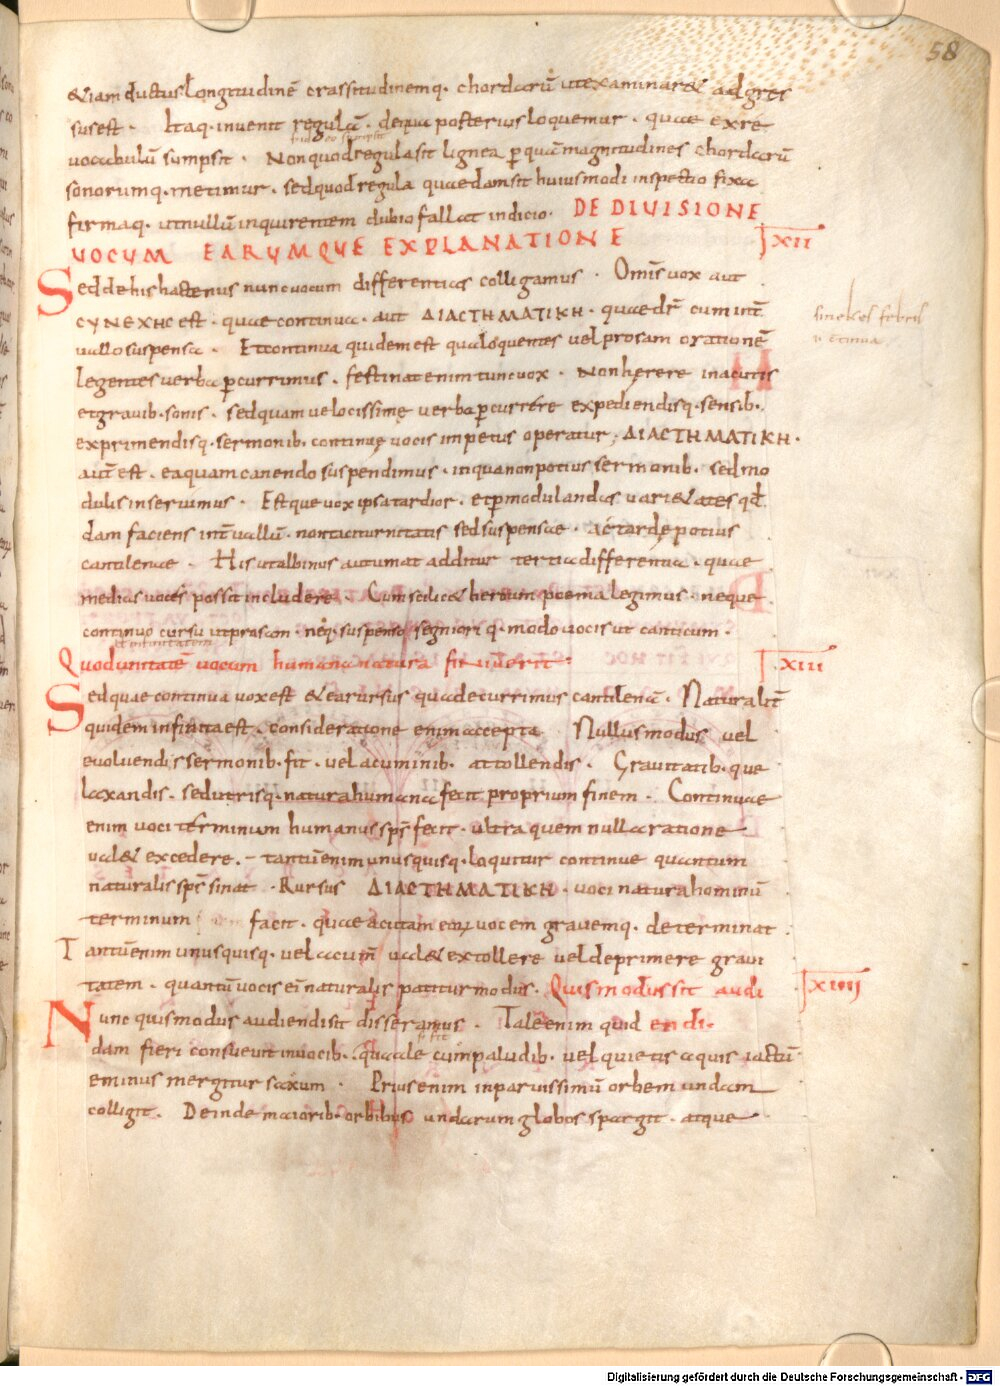 58
&iam ductus longitudinē crassitudinemq. chordarū utexaminar& adgres
susest. Itaq. inuenit regulā. dequa posterius loquemur. quae exre
uocabulū sumpsit. Nonquodregulasit lignea p quā magnitudines chordarū
sonorumq. metimur. sedquod regula quaedamsit huiusmodi inspectio fixa
firmaq. utnullū inquirentem dubio fallat indicio. DE DIUISIONE
UOCUM EARUMQUE EXPLANATIONE XII
Seddehis hactenus nuncuocum differentias colligamus. Omīs uox aut
CYNEXHC est. quae continua. aut ΔIACTHMATIKH. quae dr̄ cum int̄
uallo suspensa. Et continua quidem est qua loquentes uel prosam orationē
legentes uerba pcurrimus. festinat enim tunc uox. non hęrere inacutis
etgrauib. sonis. sed quam uelocissimę uerba pcurrere expediendisq. sensib.
exprimendisq. sermonib. continuę uocis impetus operatur; ΔIACTHMATIKH.
aut̄ est. ea quam canendo suspendimus. inqua non potius sermonib. sed mo
dulis inseruimus. Estque uox ipsa tardior. et p modulandas uariaetates qđ
dam faciens int̄uallū. non taciturnitatis sed suspensae. ac tarde potius
cantilenae. His utalbinus autumat additur tertia differentia. quae
medias uoces possit includere. Cum scilic& heroum poema legimus. neque
continuo cursu utprosam. neq. suspenso segniori q. modo uocis ut canticum.
Quod unitatē uocum humana natura finiuerit: XIII
Sed quae continua uox est & ea rursus qua decurrimus cantilenā. Naturalit̄
quidem infinita est. consideratione enim accepta Nullus modus uel
euoluendis sermonib. fit. uel acuminib. attollendis. Grauitatib. que
laxandis. sed utrisq. natura humana fecit proprium finem. Continuae
enim uoci terminum humanus sps̄ fecit. ultra quem nulla ratione
ual& excedere. tantū enim unusquisq. loquitur continue quantum
naturalis sps̄ sinat. Rursus ΔIACTHMATIKH. uoci natura hominū
terminum facit. quae acutam eorum uocem grauemq. determinat
Tantū enim unusquisq. uel acum̄ ual& extollere uel deprimere graui
tatem. quantū uocis eī naturalis patitur modus. Quis modus sit audi XIIII
Nunc quis modus audiendi sit disseramus. Tale enim quid endi.
dam fieri consueuit inuocib. quale cum paludib. uel quietis aquis iactū
eminus mergitur saxum. Prius enim inparuissimū orbem undam
colligit. Deinde maiorib. orbibus undarum globos spargit. atque
Digitalisierung gefördert durch die Deutsche Forschungsgemeinschaft - DFG